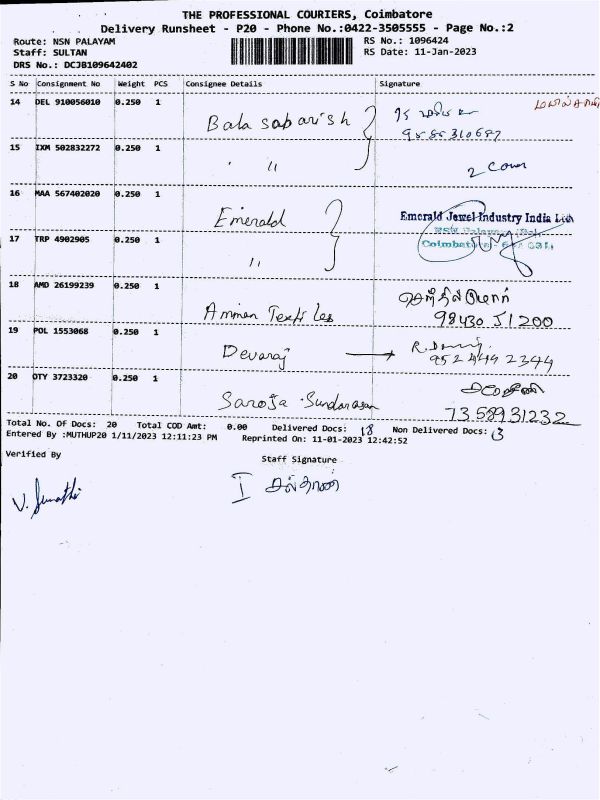 THE PROFESSIONAL COURIERS, Coimbatore
Delivery Runsheet - P20 - Phone No.:0422-3505555 - Page No.:2
Route: NSN PALAYAM RS No.: 1096424
Staff: SULTAN RS Date: 11-Jan-2023
DRS No.: DCJB109642402
S No Consignment No Weight PCS Consignee Details Signature
14 DEL 910056010 0.250 1 Bala sabarish
15 IXM 502832272 0.250 1 " 2 Cover
16 MAA 567402020 0.250 1 Emerald Emerald Jewel Industry India Ltd
17 TRP 4902905 0.250 1 "
18 AMD 26199239 0.250 1 Amman Textiles 98430 51200
19 POL 1553068 0.250 1 Devaraj → 952 449 2344
20 OTY 3723320 0.250 1 Saroja Sundarasan 7358931232
Total No. Of Docs: 20 Total COD Amt: 0.00 Delivered Docs: 18 Non Delivered Docs: 3
Entered By :MUTHUP20 1/11/2023 12:11:23 PM Reprinted On: 11-01-2023 12:42:52
Verified By Staff Signature